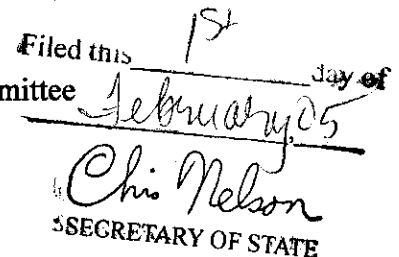 Filed this 1st day of
mittee February, 05
Chris Nelson
SECRETARY OF STATE